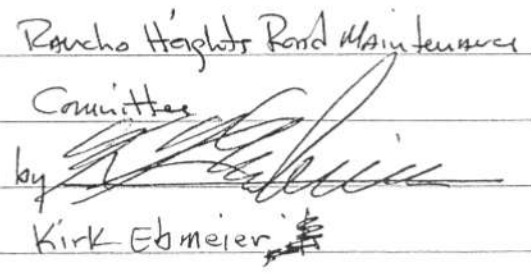 Rancho Heights Road Maintenance
Committee
by
Kirk Ebmeier